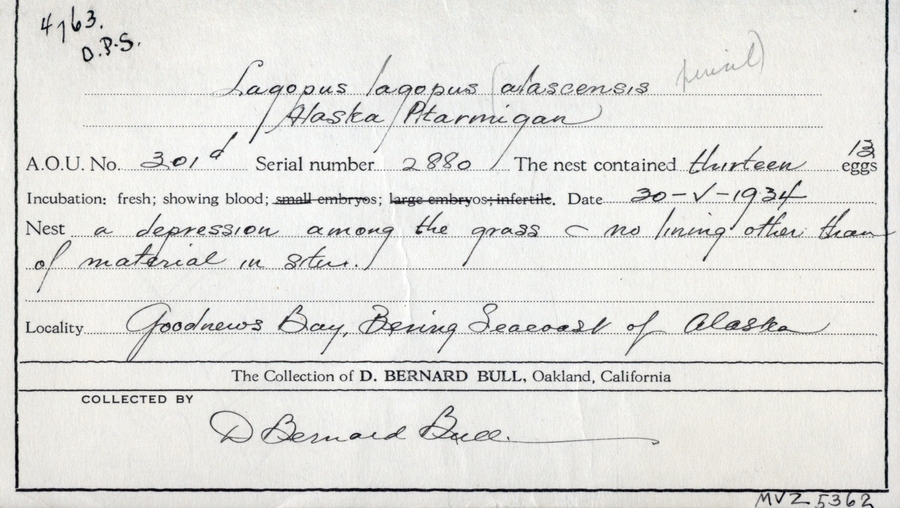 4763.
O.P.S.
Lagopus lagopus alascensis
Alaska Ptarmigan
A.O.U. No. 301d Serial number 2880 The nest contained thirteen 13 eggs
Incubation: fresh; showing blood; small embryos; large embryos; infertile. Date 30-V-1934
Nest a depression among the grass no lining other than
of material in situ.
Locality Goodnews Bay, Bering Seacoast of Alaska
The Collection of D. BERNARD BULL, Oakland, California
COLLECTED BY
D Bernard Bull.
MVZ 5362